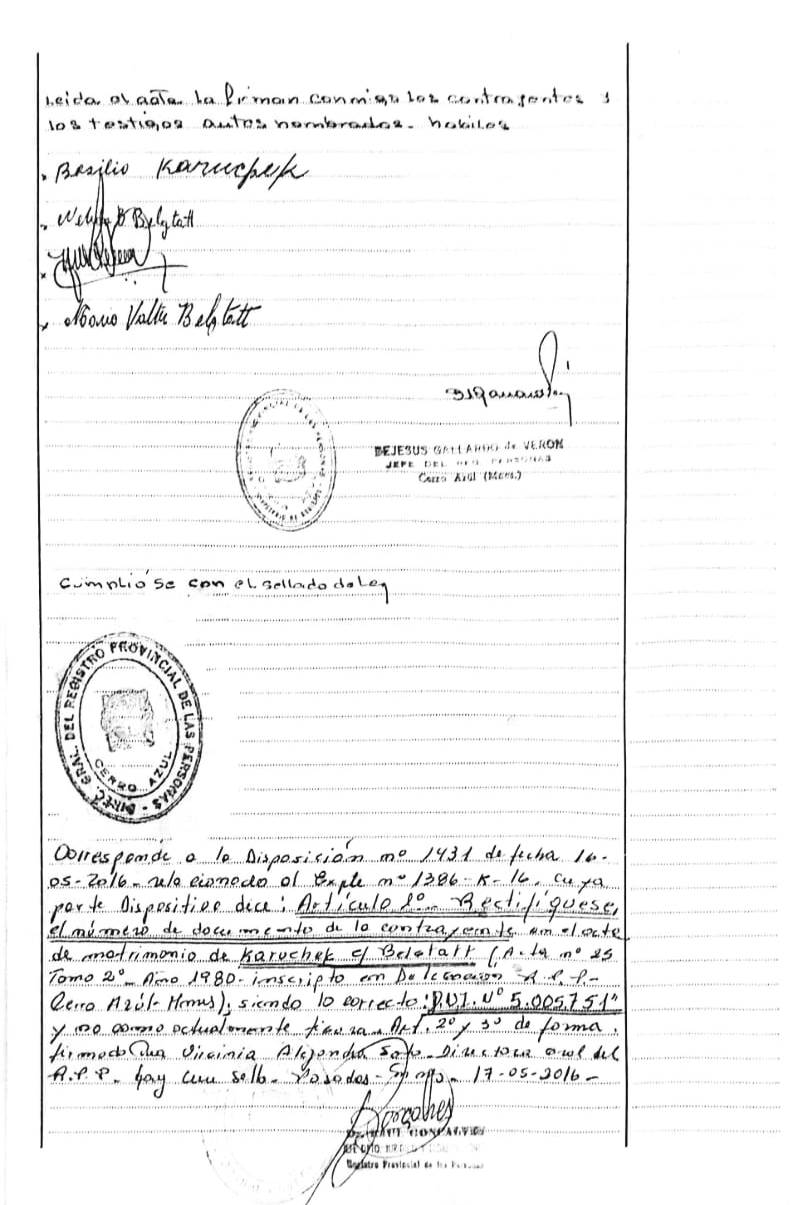 Leida el acta la firman conmigo los contrayentes y
los testigos antes nombrados. habiles
Basilio Karuchek
B Belgtatt
Mario Valter Belgtatt
DEJESUS GALLARDO de VERON
JEFE DEL REG. PERSONAS
Cerro Azul (Mnes.)
Cumplió se con el sellado de Ley
DIREC. GRAL. DEL REGISTRO PROVINCIAL DE LAS PERSONAS
CERRO AZUL
Corresponde a la Disposición nº 1431 de fecha 16-
05-2016- relacionado al Expte nº 1386-K-16, cuya
parte Dispositiva dice: Artículo 1º- Rectifíquese,
el número de documento de la contrayente en el acta
de matrimonio de Karuchek c/ Belgtatt (Acta nº 25
Tomo 2º- Año 1980- inscripto en Delegación R.P.P-
Cerro Azúl- Mnes); siendo lo correcto: "D.N.I. Nº 5.005.751"
y no como actualmente figura- Art. 2º y 3º de forma.
firmado Virginia Alejandra Directora Gral del
R.P.P. hay un sello- Posadas- 17-05-2016-
Gonçalves
GONÇALVES
Registro Provincial de las Personas